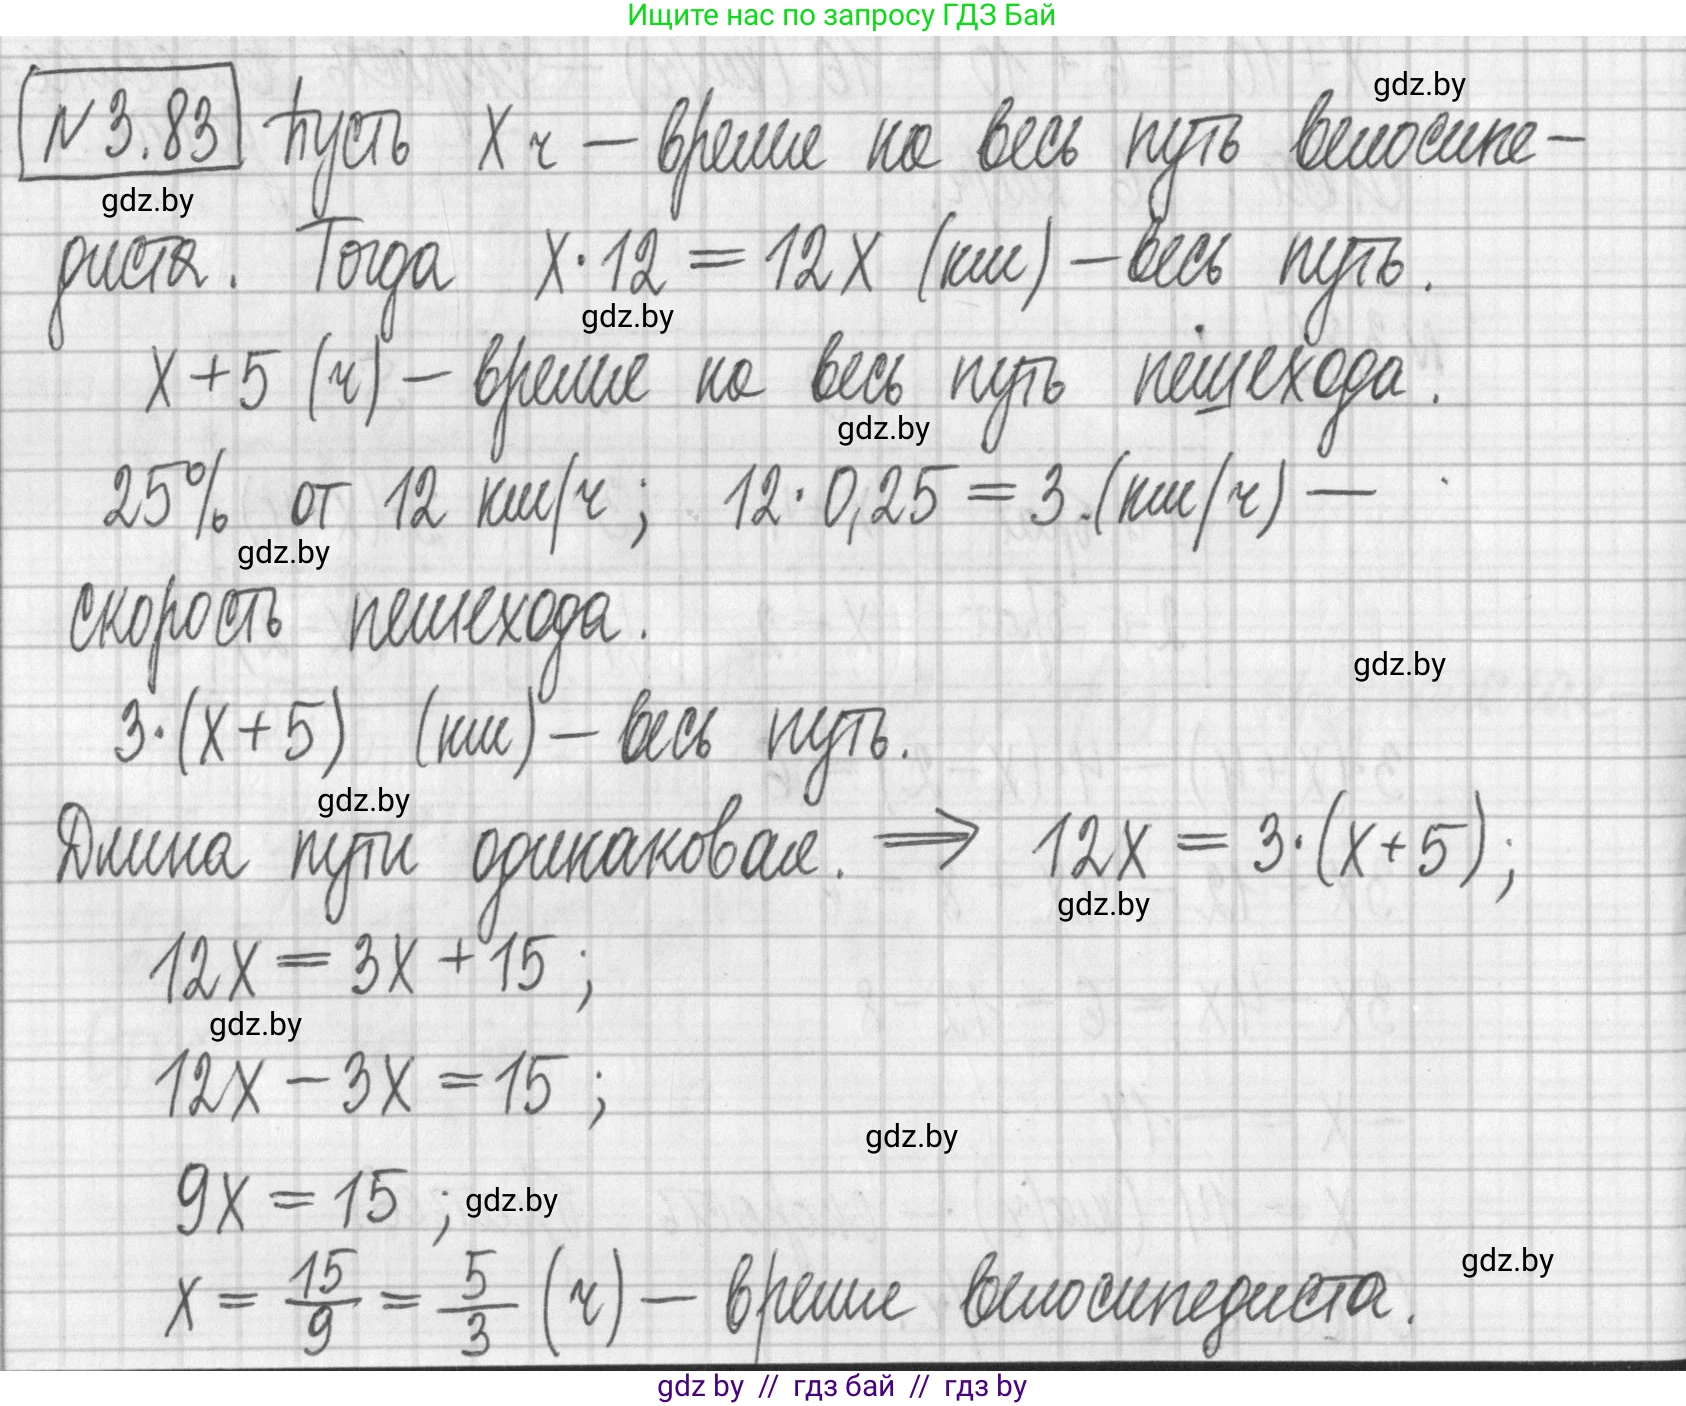 Ищите нас по запросу ГДЗ Бай
N 3.83 Пусть x ч – время на весь путь велосипе–
gdz.by
gdz.by
диста. Тогда x·12 = 12x (км) – весь путь.
gdz.by
x+5 (ч) – время на весь путь пешехода.
gdz.by
25% от 12 км/ч; 12·0,25 = 3 (км/ч) –
gdz.by
скорость пешехода.
gdz.by
3·(x+5) (км) – весь путь.
gdz.by
Длина пути одинаковая. ⟹ 12x = 3·(x+5);
gdz.by
12x = 3x + 15;
gdz.by
12x – 3x = 15;
gdz.by
9x = 15; gdz.by
gdz.by
x = 15/9 = 5/3 (ч) – время велосипедиста.
gdz by // гдз бай // гдз by